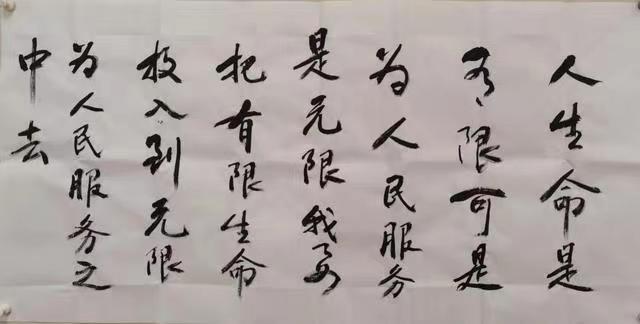 人生命是
有限可是
为人民服务
是无限我要
把有限生命
投入到无限
为人民服务之
中去